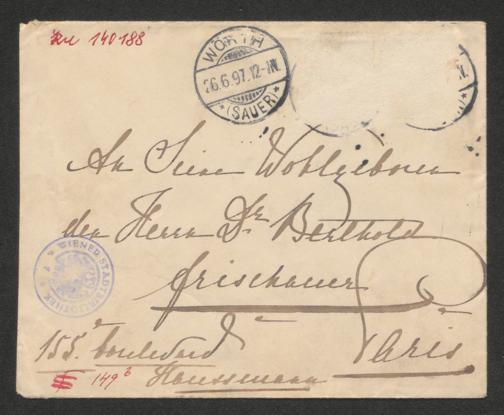 zu 140188
WÖRTH
26.6.97.12-1N.
*(SAUER)*
An Seine Wohlgeboren
den Herrn Dr Berthold
Frischauer
WIENER STADTBIBLIOTHEK
155 boulevard
Paris
149
Haussmann